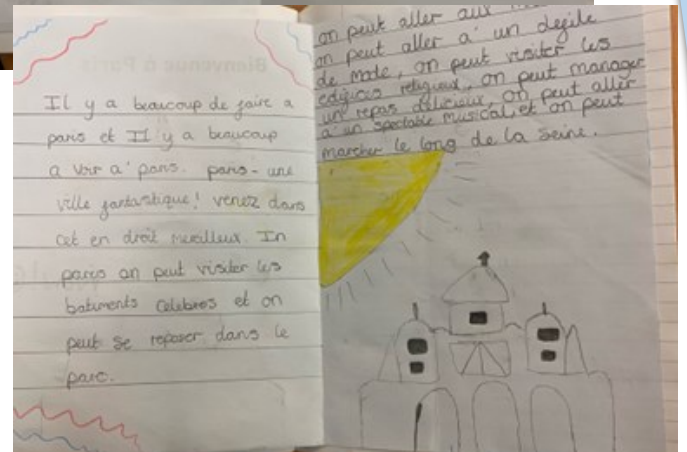 Il y a beaucoup de faire a
paris et Il y a beaucoup
a voir a' paris. paris - une
ville fantastique! venez dans
cet en droit merveilleux. In
paris on peut visiter les
batiments celebres et on
peut se reposer dans le
parc.
on peut aller aux
on peut aller a' un defile
de mode, on peut visiter les
edifices religieux, on peut manager
un repas delicieux, on peut aller
a' un spectable musical, et on peut
marcher le long de la seine.